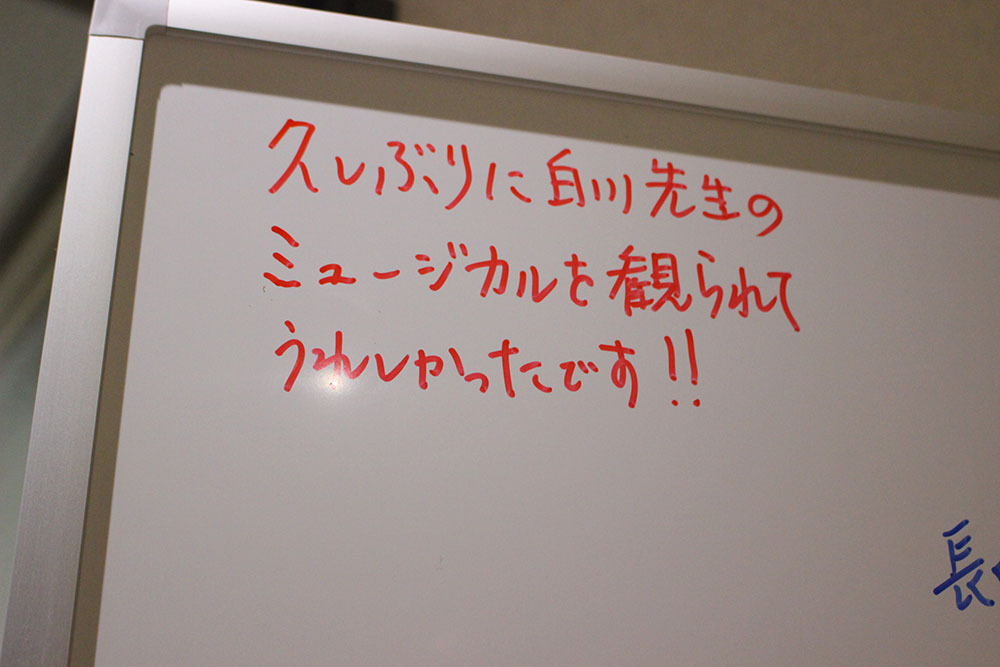 久しぶりに白川先生の
ミュージカルを観られて
うれしかったです!!
長